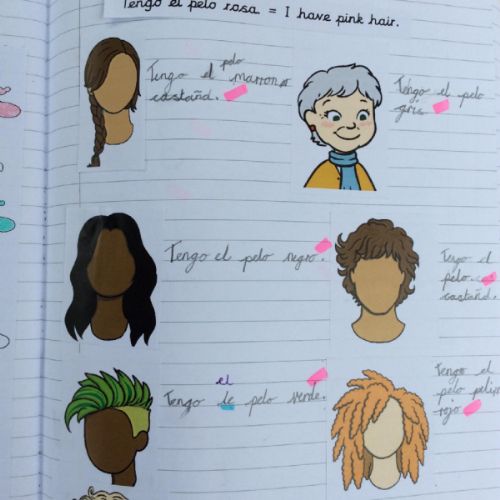 Tengo el pelo rosa = I have pink hair.
Tengo el pelo marron
castañd.
Tengo el pelo
gris
Tengo el pelo negro.
Tengo el
pelo
castañd.
el
Tengo le pelo verde.
Tengo el
pelo
rojo